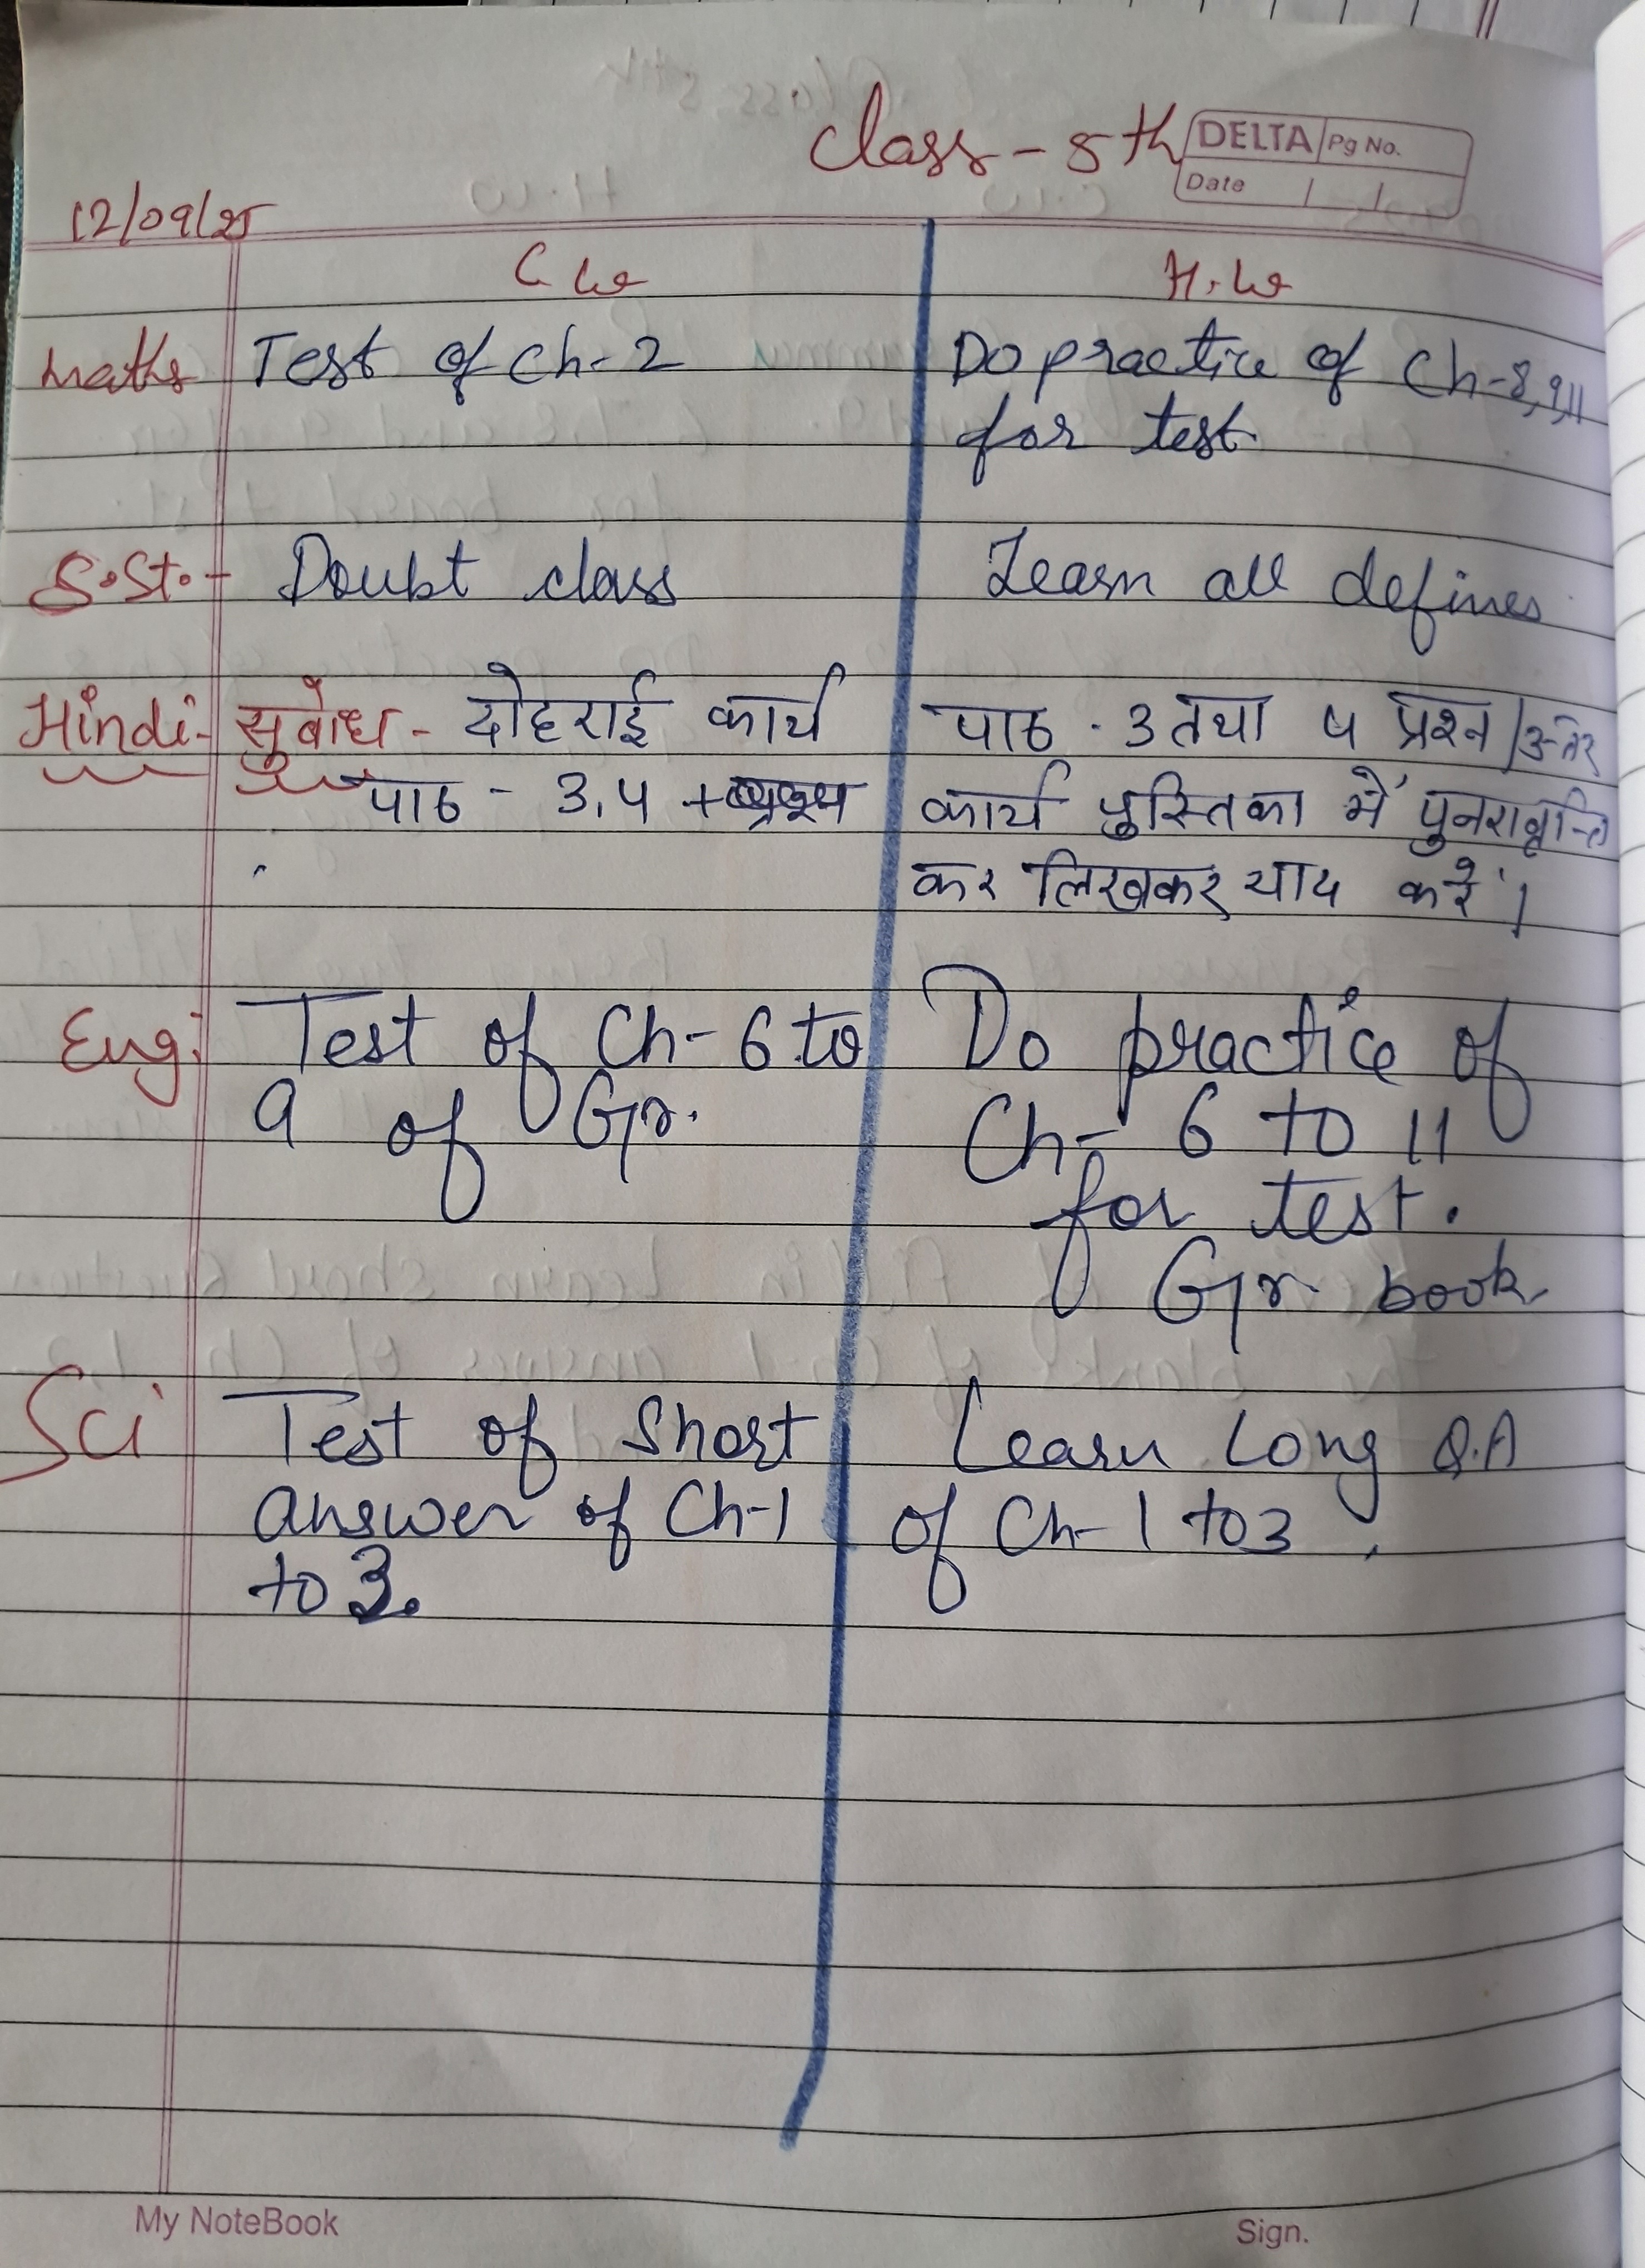 Class - 8th
DELTA Pg No.
Date / /
12/09/25
C.w H.w
Maths Test of Ch-2 Do practice of Ch-8,9,11
for test
S.St. - Doubt class Learn all defines
Hindi - सुबोध - दोहराई कार्य पाठ - 3 तथा 4 प्रश्न/उत्तर
पाठ - 3,4 + कार्य पुस्तिका में पुनरावृत्ति
कर लिखकर याद करें।
Eng: Test of Ch-6 to Do practice of
9 of Gr. Ch- 6 to 11
for test.
Gr. book
Sci Test of Short Learn Long Q.A
answer of Ch-1 of Ch-1 to 3.
to 3.
My NoteBook Sign.